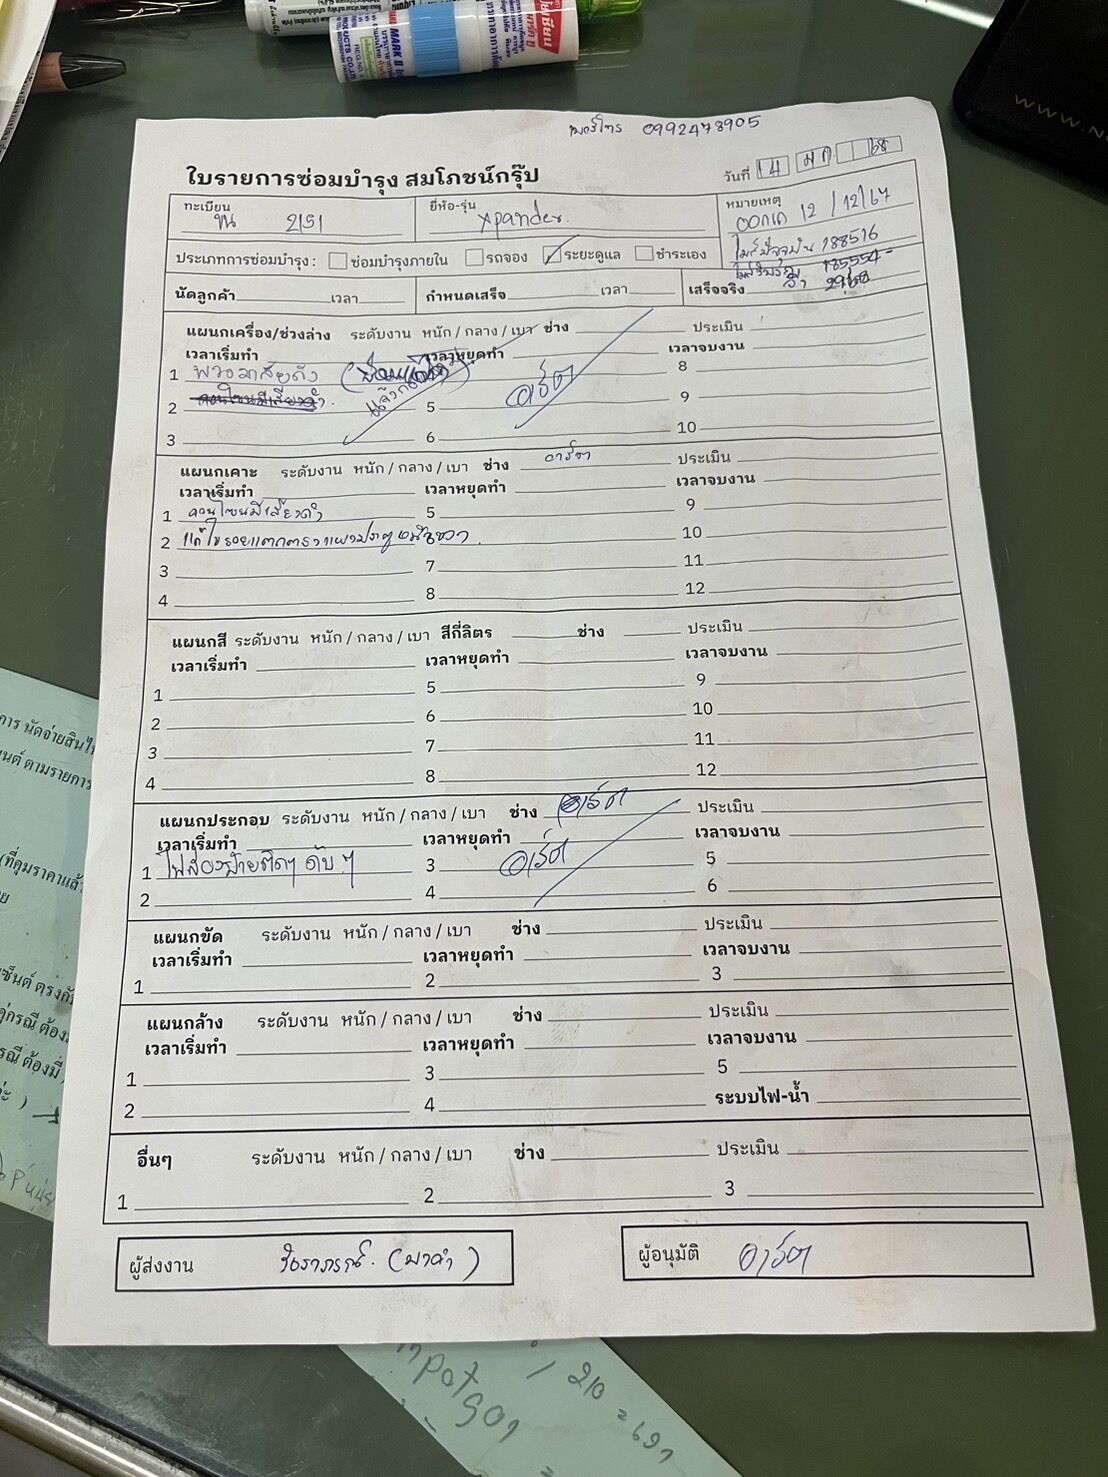 เบอร์โทร 0992478905
ใบรายการซ่อมบำรุง สมโภชน์กรุ๊ป
วันที่ 14 มก 68
ทะเบียน ขน 2151
ยี่ห้อ-รุ่น Xpander
หมายเหตุ ออกเถ 12 /12/67
ไมล์ปัจจุบัน 188516
185554
ประเภทการซ่อมบำรุง : ซ่อมบำรุงภายใน รถจอง ระยะดูแล ชำระเอง
นัดลูกค้า เวลา กำหนดเสร็จ เวลา เสร็จจริง
แผนกเครื่อง/ช่วงล่าง ระดับงาน หนัก / กลาง / เบา ช่าง ประเมิน
เวลาเริ่มทำ เวลาหยุดทำ เวลาจบงาน
1 พวงมาลัยดัง อาร์ต 8
2 คอนโซนมีเสียงดัง 5 9
3 6 10
แผนกเคาะ ระดับงาน หนัก / กลาง / เบา ช่าง อาร์ต ประเมิน
เวลาเริ่มทำ เวลาหยุดทำ เวลาจบงาน
1 คอนโซนมีเสียงดัง 5 9
2 แก้ไขรอยแตกตรงแผงประตู 10
3 7 11
4 8 12
แผนกสี ระดับงาน หนัก / กลาง / เบา สีกี่ลิตร ช่าง ประเมิน
เวลาเริ่มทำ เวลาหยุดทำ เวลาจบงาน
1 5 9
2 6 10
3 7 11
4 8 12
แผนกประกอบ ระดับงาน หนัก / กลาง / เบา ช่าง อาร์ต ประเมิน
เวลาเริ่มทำ เวลาหยุดทำ เวลาจบงาน
1 ไฟส่องป้ายติดๆ ดับๆ 3 อาร์ต 5
2 4 6
แผนกขัด ระดับงาน หนัก / กลาง / เบา ช่าง ประเมิน
เวลาเริ่มทำ เวลาหยุดทำ เวลาจบงาน
1 2 3
แผนกล้าง ระดับงาน หนัก / กลาง / เบา ช่าง ประเมิน
เวลาเริ่มทำ เวลาหยุดทำ เวลาจบงาน
1 3 5
2 4 ระบบไฟ-น้ำ
อื่นๆ ระดับงาน หนัก / กลาง / เบา ช่าง ประเมิน
1 2 3
ผู้ส่งงาน
ผู้อนุมัติ อาร์ต